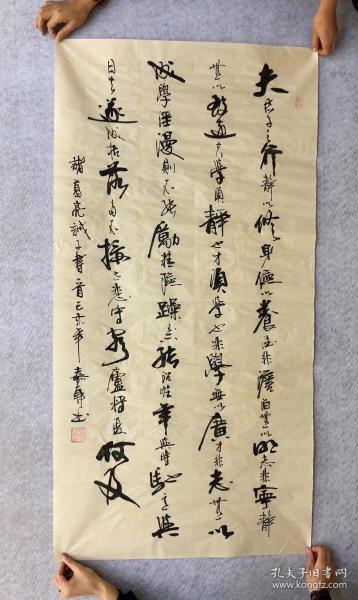 夫君子之行静以修身俭以养德非澹泊无以明志非宁静
无以致远夫学须静也才须学也非学无以广才非志无以
成学淫漫则不能励精险躁则不能治性年与时驰意与
日去遂成枯落多不接世悲守穷庐将复何及
诸葛亮诫子书一首己亥年
孔夫子旧书网
kongfz.com